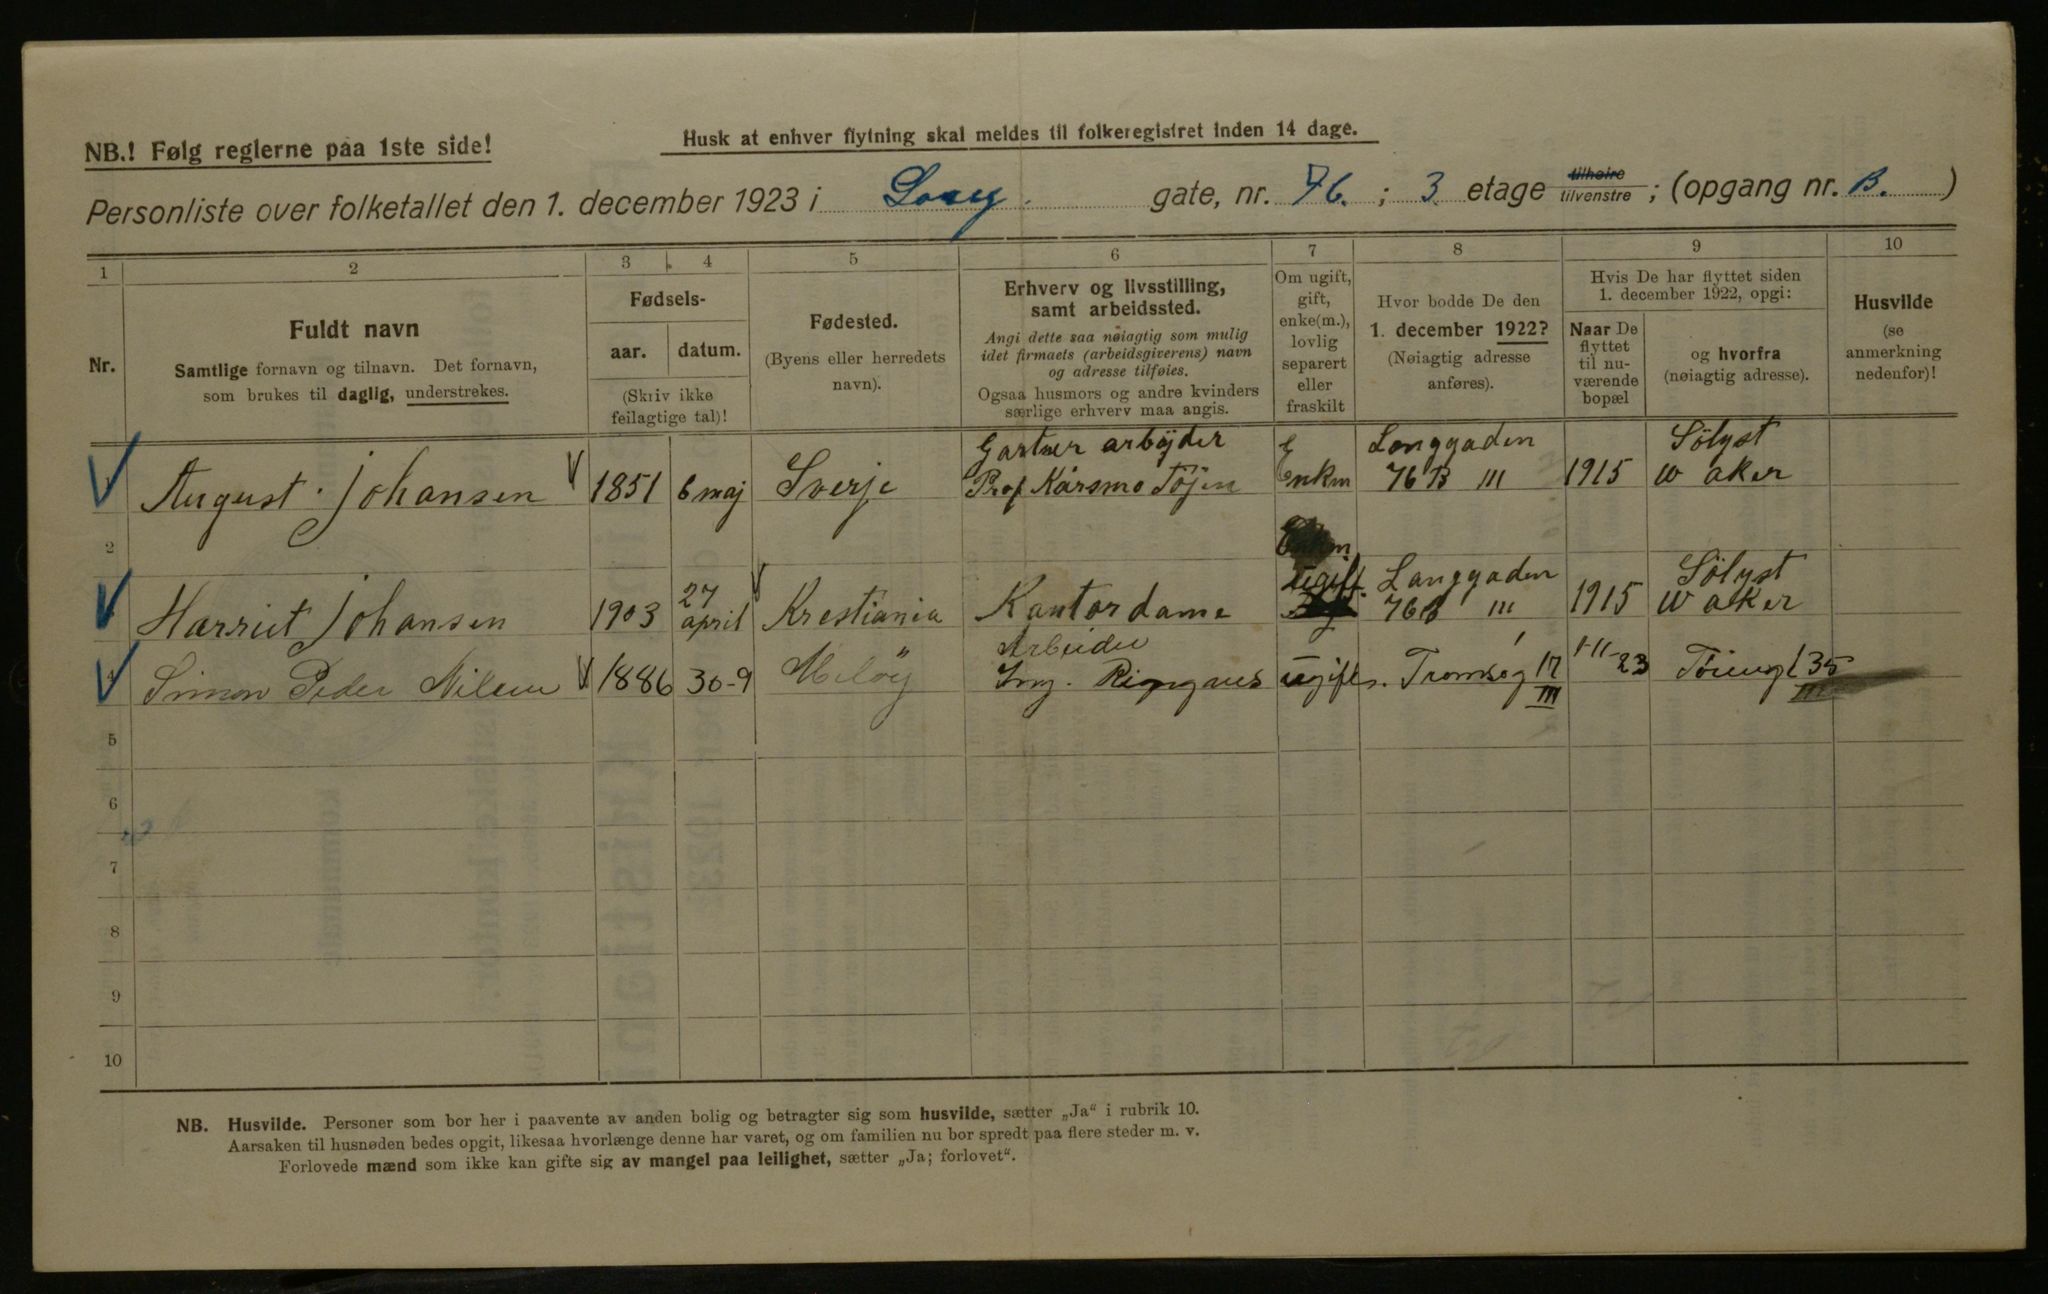 NB.! Følg reglerne paa 1ste side!
Husk at enhver flytning skal meldes til folkeregistret inden 14 dage.
Personliste over folketallet den 1. december 1923 i Lang. gate, nr. 76. ; 3 etage tilhøire tilvenstre ; (opgang nr. B. )
1 2 3 4 5 6 7 8 9 10
Nr.
Fuldt navn
Samtlige fornavn og tilnavn. Det fornavn,
som brukes til daglig, understrekes.
Fødsels-
aar. datum.
(Skriv ikke
feilagtige tal)!
Fødested.
(Byens eller herredets
navn).
Erhverv og livsstilling,
samt arbeidssted.
Angi dette saa nøiagtig som mulig
idet firmaets (arbeidsgiverens) navn
og adresse tilføies.
Ogsaa husmors og andre kvinders
særlige erhverv maa angis.
Om ugift,
gift,
enke(m.),
lovlig
separert
eller
fraskilt
Hvor bodde De den
1. december 1922?
(Nøiagtig adresse
anføres).
Hvis De har flyttet siden
1. december 1922, opgi:
Naar De
flyttet
til nu-
værende
bopæl
og hvorfra
(nøiagtig adresse).
Husvilde
(se
anmerkning
nedenfor)!
Gartner arbøjder E Langgaden Sölyst
August Johansen 1851 6 maj Sverje Prof Kårsmo Töjen Enkm 76 B III 1915 W aker
2
27 ugift. Langgaden Sölyst
Harriet Johansen 1903 april Krestiania Kantordame 76B III 1915 W aker
Arbeider
4 Simon Peder Nilsen 1886 30-9 Meløy Ing. Ringnes ugift. Tromsøg 17 III 1-11-23 Tøieng 35 III
5
6
7
8
9
10
NB. Husvilde. Personer som bor her i paavente av anden bolig og betragter sig som husvilde, sætter „Ja“ i rubrik 10.
Aarsaken til husnøden bedes opgit, likesaa hvorlænge denne har varet, og om familien nu bor spredt paa flere steder m. v.
Forlovede mænd som ikke kan gifte sig av mangel paa leilighet, sætter „Ja; forlovet“.